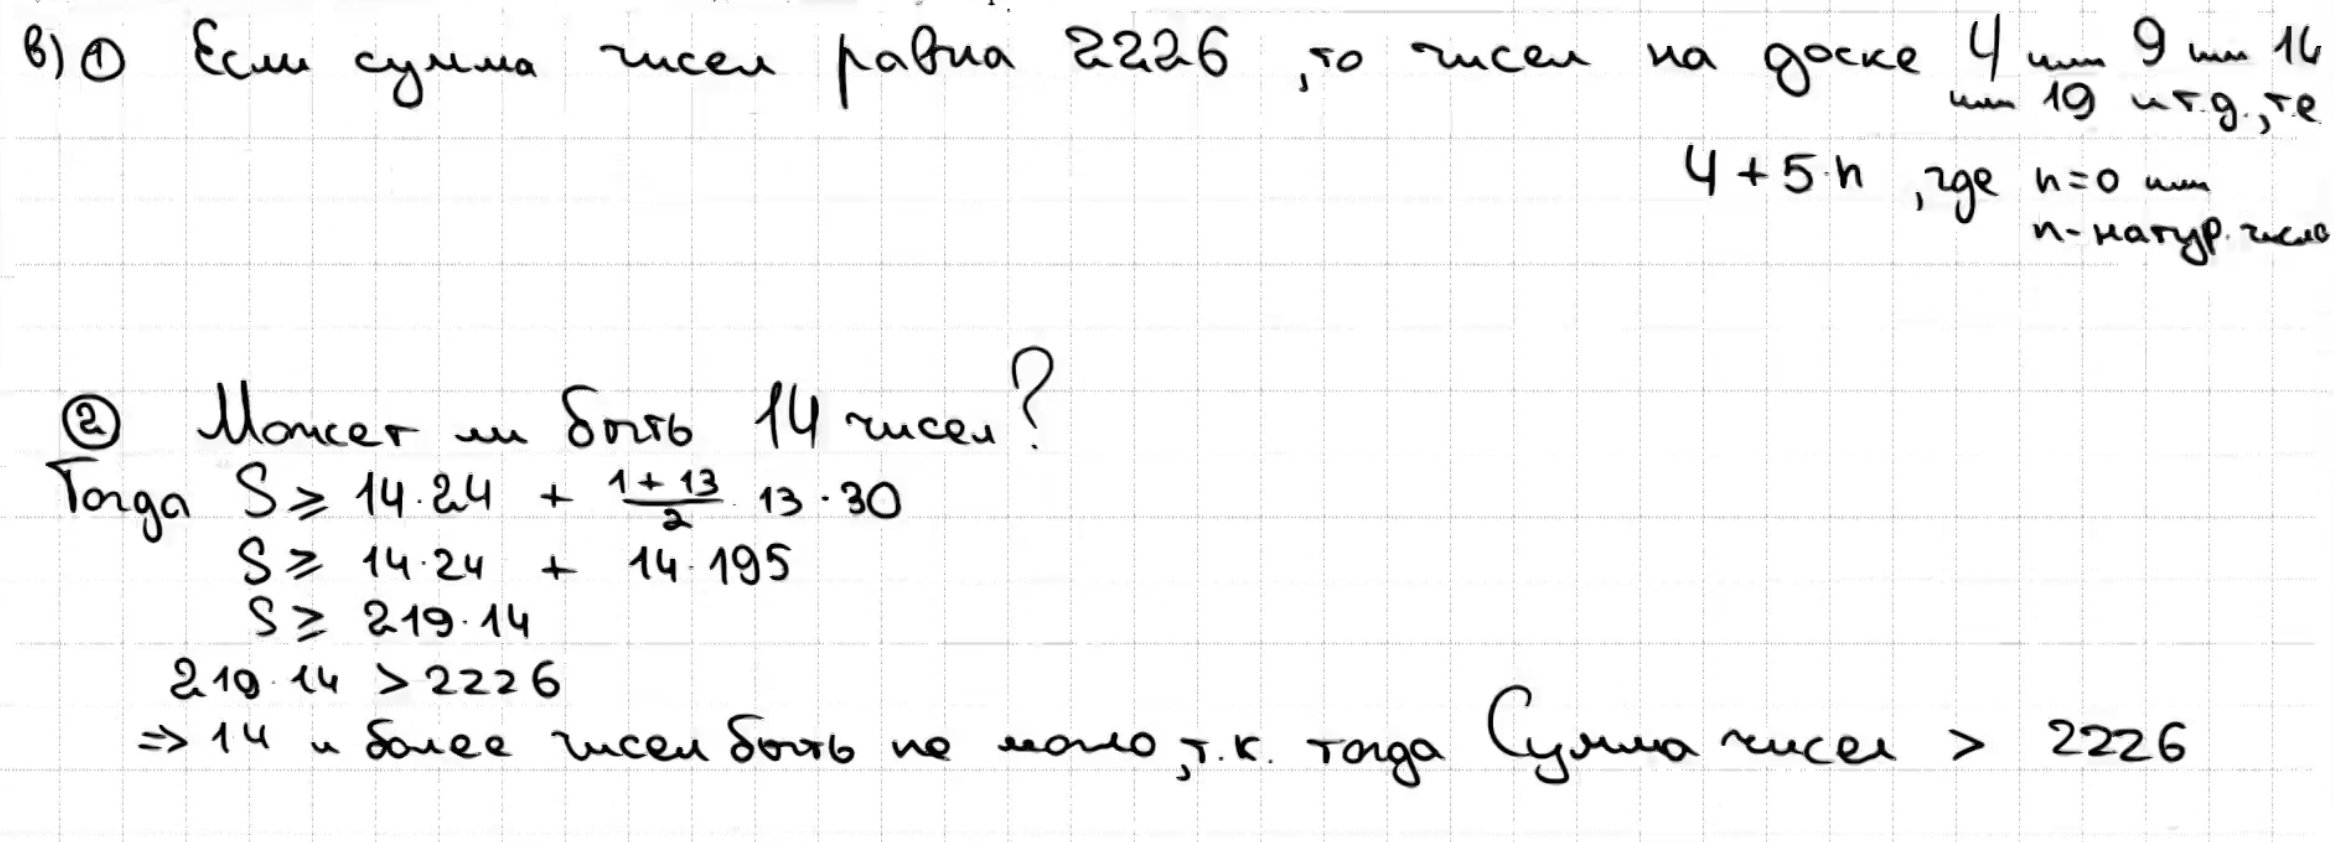 в) ① Если сумма чисел равна 2226, то чисел на доске 4 или 9 или 14
или 19 и т.д., т.е
4 + 5·n , где n=0 или
n - натур. число
② Может ли быть 14 чисел?
Тогда S ≥ 14·24 + (1 + 13)/2 · 13 · 30
S ≥ 14·24 + 14·195
S ≥ 219·14
219·14 > 2226
⇒ 14 и более чисел быть не могло, т.к. тогда Сумма чисел > 2226